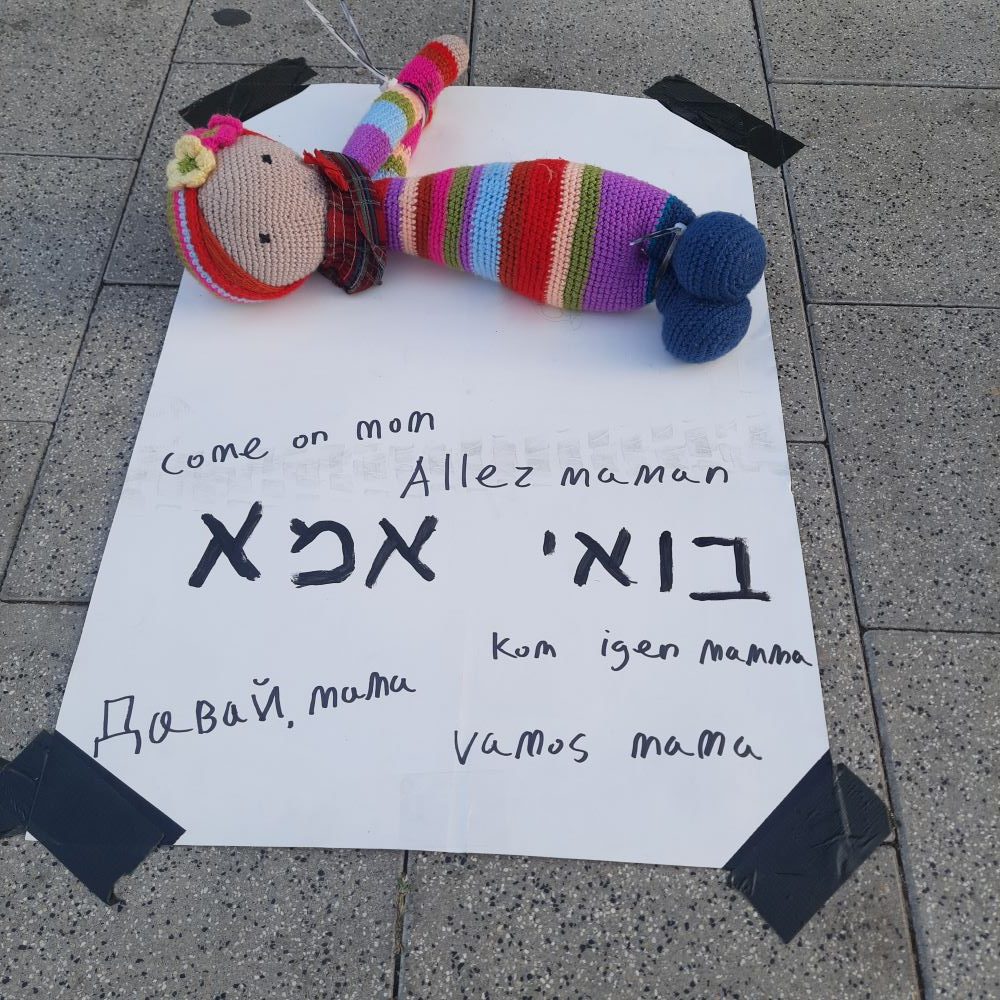 come on mom
Allez maman
בואי אמא
kom igen mamma
Давай, мама
vamos mama